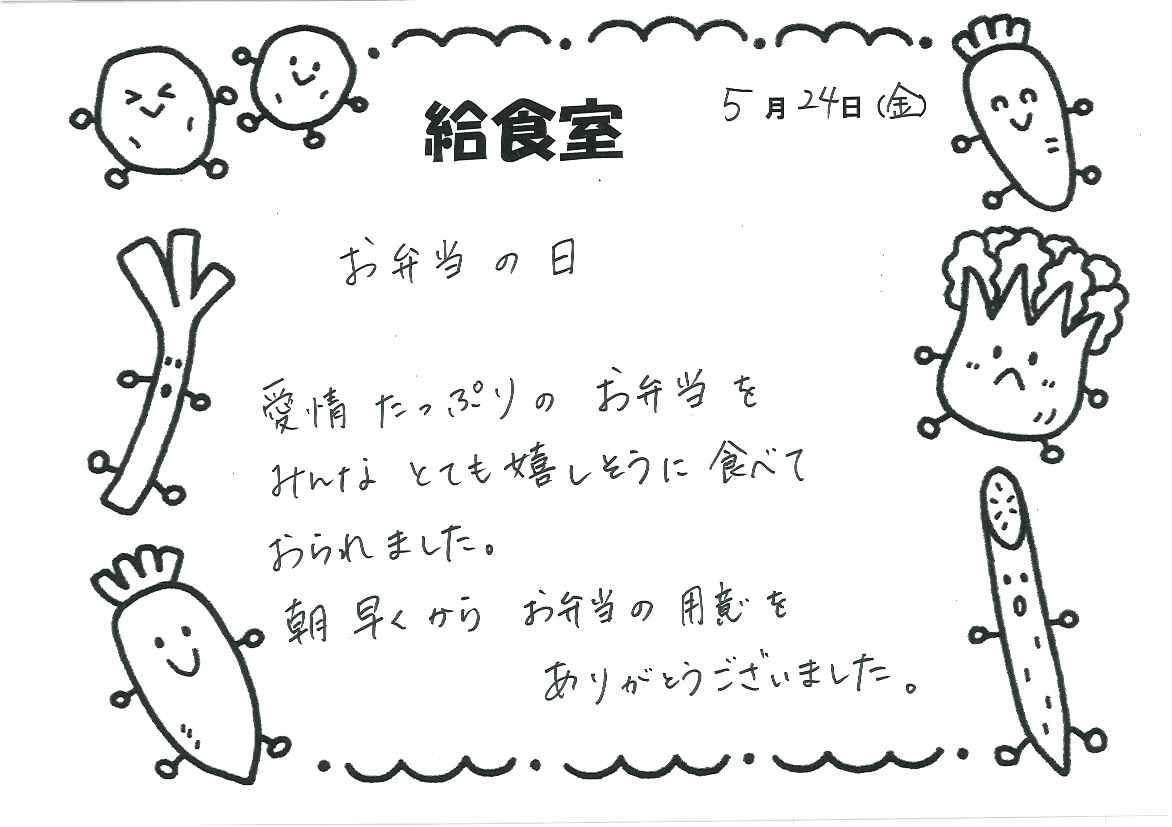 給食室
5月24日(金)
お弁当の日
愛情たっぷりのお弁当を
みんなとても嬉しそうに食べて
おられました。
朝早くからお弁当の用意を
ありがとうございました。